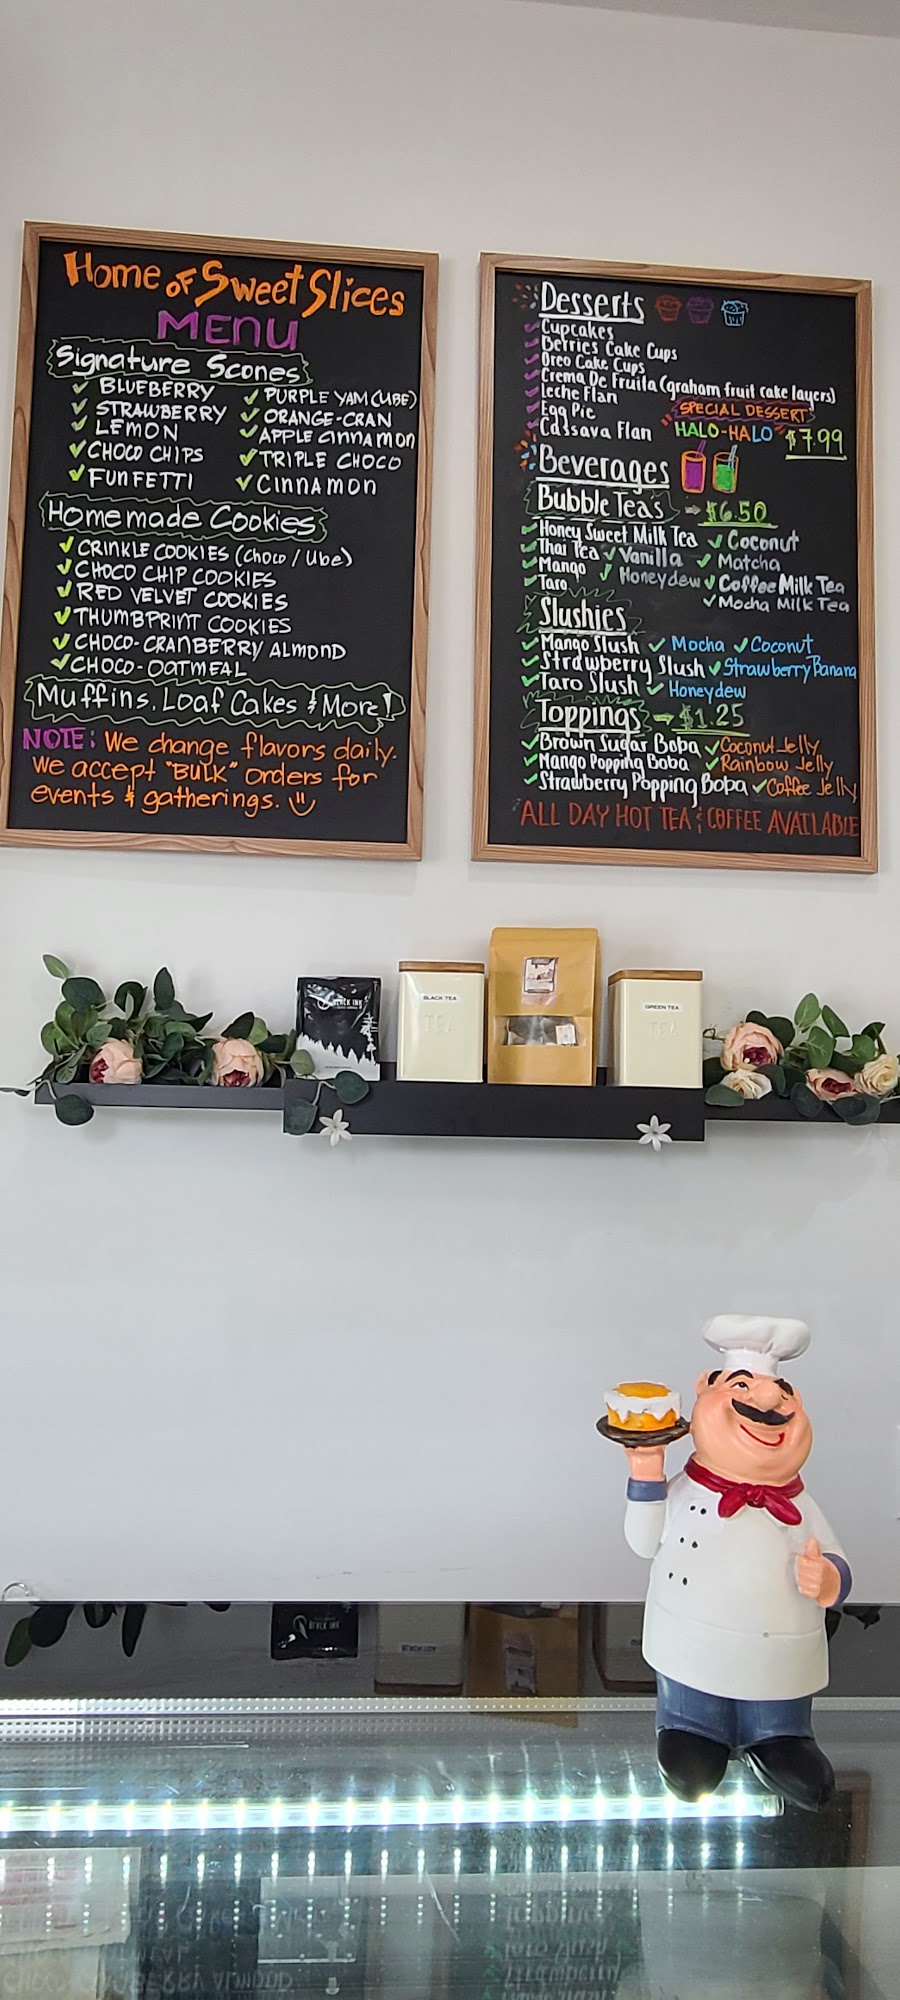 Home of Sweet Slices
MENU
Signature Scones
✓ BLUEBERRY
✓ STRAWBERRY
✓ LEMON
✓ CHOCO CHIPS
✓ FUNFETTI
✓ PURPLE YAM (UBE)
✓ ORANGE-CRAN
✓ APPLE CINNAMON
✓ TRIPLE CHOCO
✓ CINNAMON
Homemade Cookies
✓ CRINKLE COOKIES (Choco / Ube)
✓ CHOCO CHIP COOKIES
✓ RED VELVET COOKIES
✓ THUMBPRINT COOKIES
✓ CHOCO-CRANBERRY ALMOND
✓ CHOCO-OATMEAL
Muffins, Loaf Cakes & More!
NOTE: We change flavors daily.
We accept "BULK" orders for
events & gatherings.
Desserts
✓ Cupcakes
✓ Berries Cake Cups
✓ Oreo Cake Cups
✓ Crema De Fruita (graham fruit cake layers)
✓ Leche Flan
✓ Egg Pie
✓ Cassava Flan
SPECIAL DESSERT
HALO-HALO $7.99
Beverages
Bubble Teas → $6.50
✓ Honey Sweet Milk Tea ✓ Coconut
✓ Thai Tea ✓ Vanilla ✓ Matcha
✓ Mango ✓ Honeydew ✓ Coffee Milk Tea
✓ Taro ✓ Mocha Milk Tea
Slushies
✓ Mango Slush ✓ Mocha ✓ Coconut
✓ Strawberry Slush ✓ Strawberry Banana
✓ Taro Slush ✓ Honeydew
Toppings → $1.25
✓ Brown Sugar Boba ✓ Coconut Jelly
✓ Mango Popping Boba ✓ Rainbow Jelly
✓ Strawberry Popping Boba ✓ Coffee Jelly
ALL DAY HOT TEA & COFFEE AVAILABLE
BLACK INK
BLACK TEA
TEA
GREEN TEA
TEA